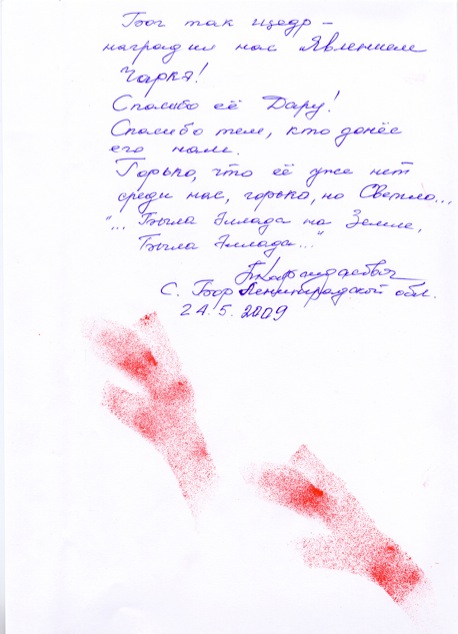 Бог так щедро –
наградил нас Явлением
Спасибо её Дару!
Спасибо тем, кто донёс
его нам.
Горько, что её уже нет
среди нас, горько, но Светло...
"... Была Эллада на Земле,
Была Эллада..."
С. Бор Ленинградской обл.
24.5.2009